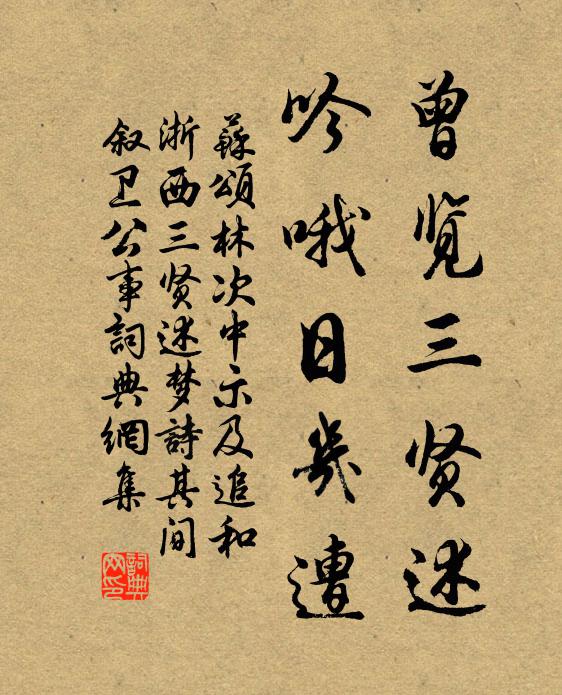 曾览三贤述
吟哦日几遭
蘇頌林次中示及追和
浙西三贤述梦詩其间
叙卫公事詞典網集
詞典网印